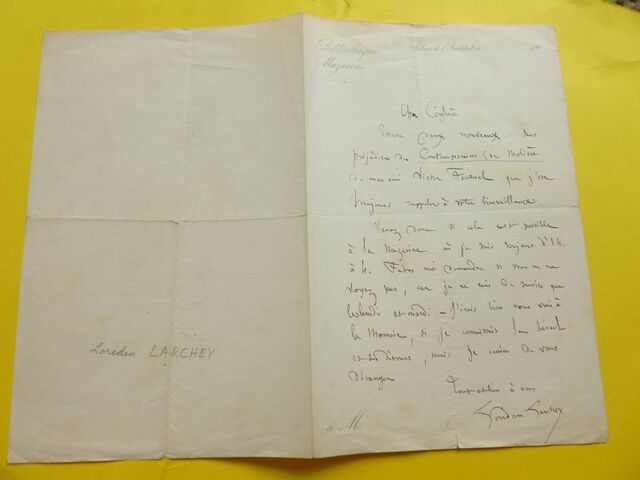 Bibliothèque
Mazarine
Palais de l'Institut, le 18
Cher Confrère
Encore deux nouveaux ... des
préjudice des Contemporains de Molière
de mon ami Victor Fournel que j'ose
toujours rappeler à votre bienveillance.
Venez donc si cela est possible
à la Mazarine où je suis toujours d'1 h.
à 4. Faites moi demander si vous ne me
voyez pas, car je ne suis de service que
les lundis et mardi. - J'irais bien vous voir à
la Monnaie, si je connaissais
et ses détours, mais je crains de vous
déranger
Tout à vous
Lorédan Larchey
à M
Lorédan LARCHEY